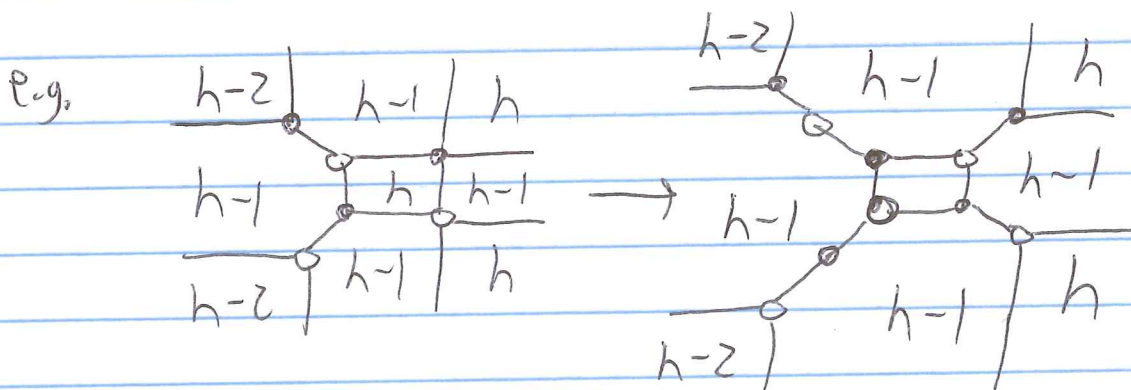 e.g.
h-2 h-1 h
h-1 h h-1
h-2 h-1 h
→
h-2 h-1 h
h-1 h-1
h-2 h-1 h